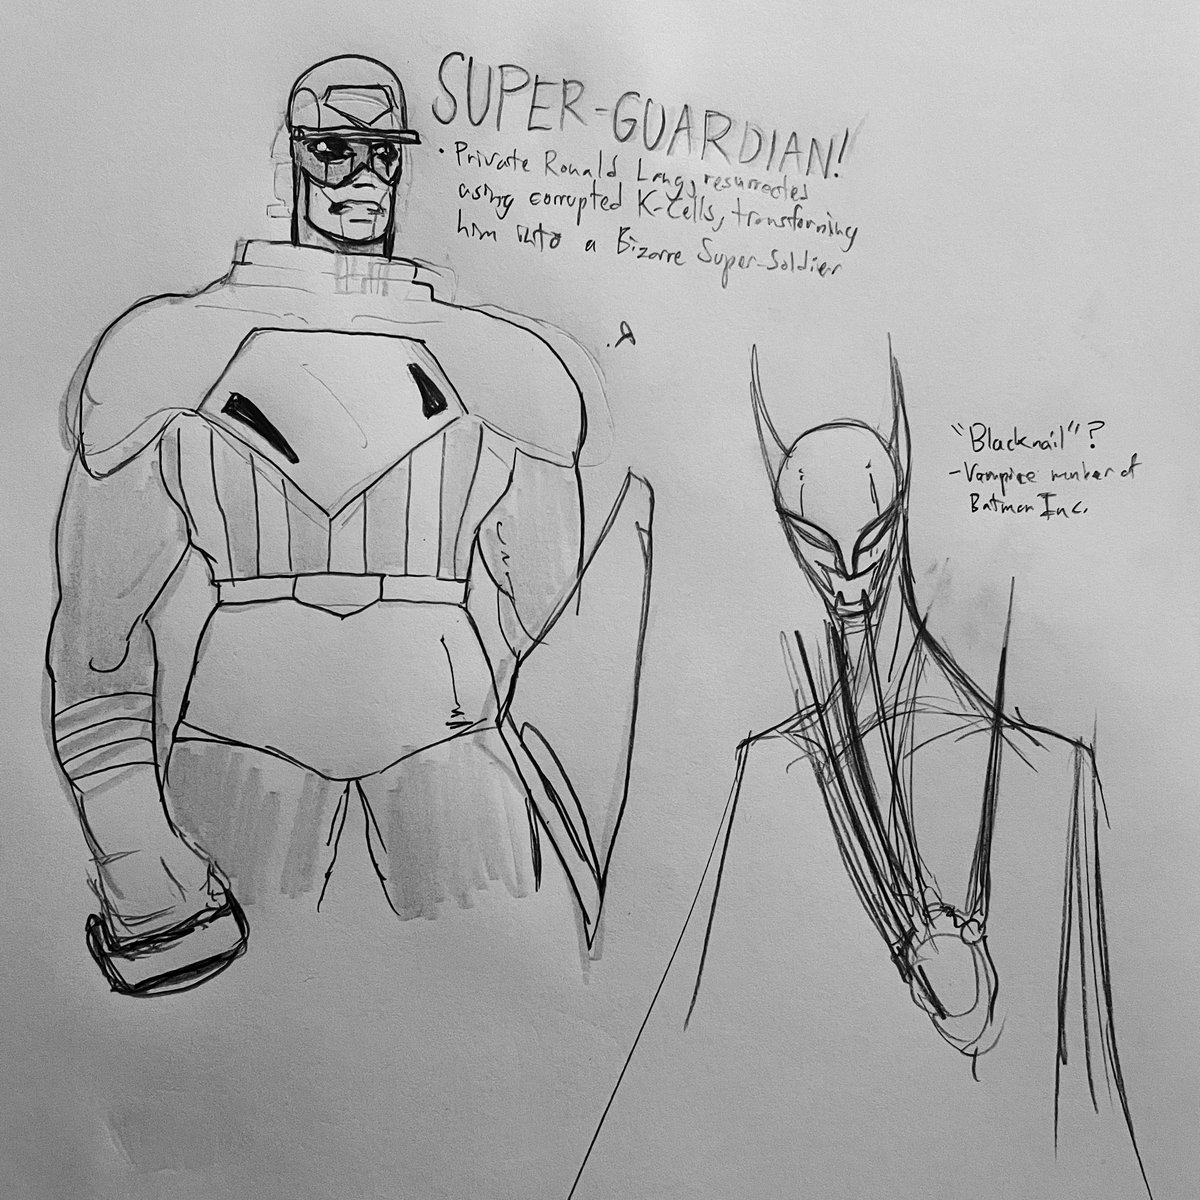 SUPER-GUARDIAN!
• Private Ronald Lang, resurrected
using corrupted K-Cells, transforming
him into a Bizarre Super-Soldier
"Blacknail"?
- Vampire member of
Batman Inc.